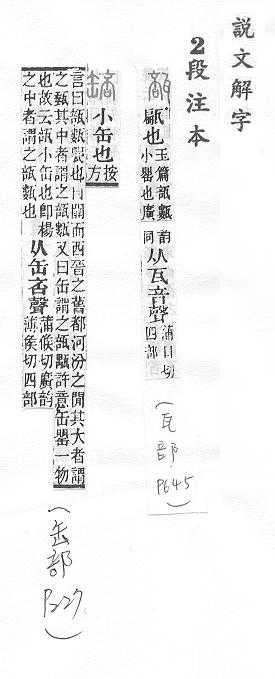 說文解字
2段注本
瓿 甂也 玉篇瓿甊
小甖也廣
韵
同 从瓦音聲 蒲口切
四部
(瓦部 P645)
䍌 小缶也 按
方
言曰瓿甊甖也自關而西晉之舊都河汾之閒其大者謂
之甀其中者謂之瓿甊又曰缶謂之瓿㼶許意缶器一物
也故云瓿小缶也卽楊
之中者謂之瓿甊也 从缶咅聲 蒲候切廣韵
薄侯切四部
(缶部 P227)